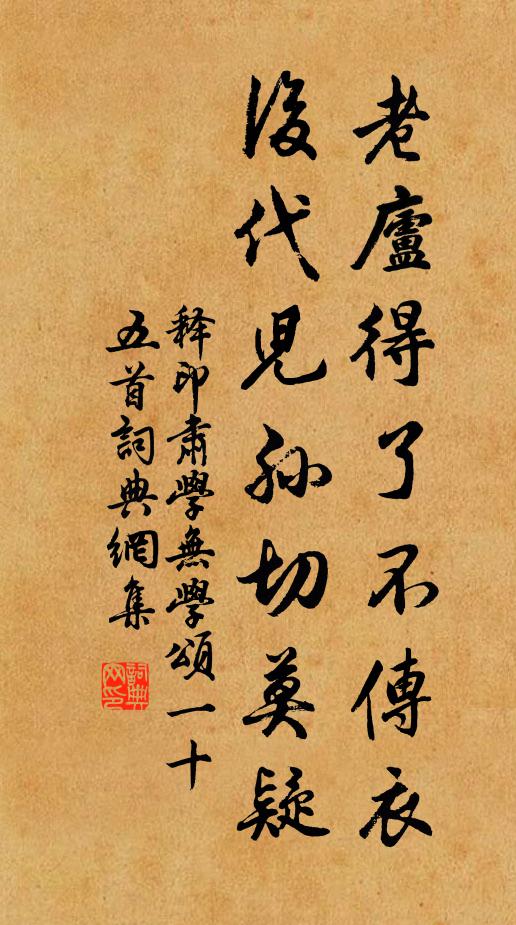 老廬得了不傳衣
後代児孙切莫疑
释印肅學無學頌一十
五首詞典網集
詞典
网印